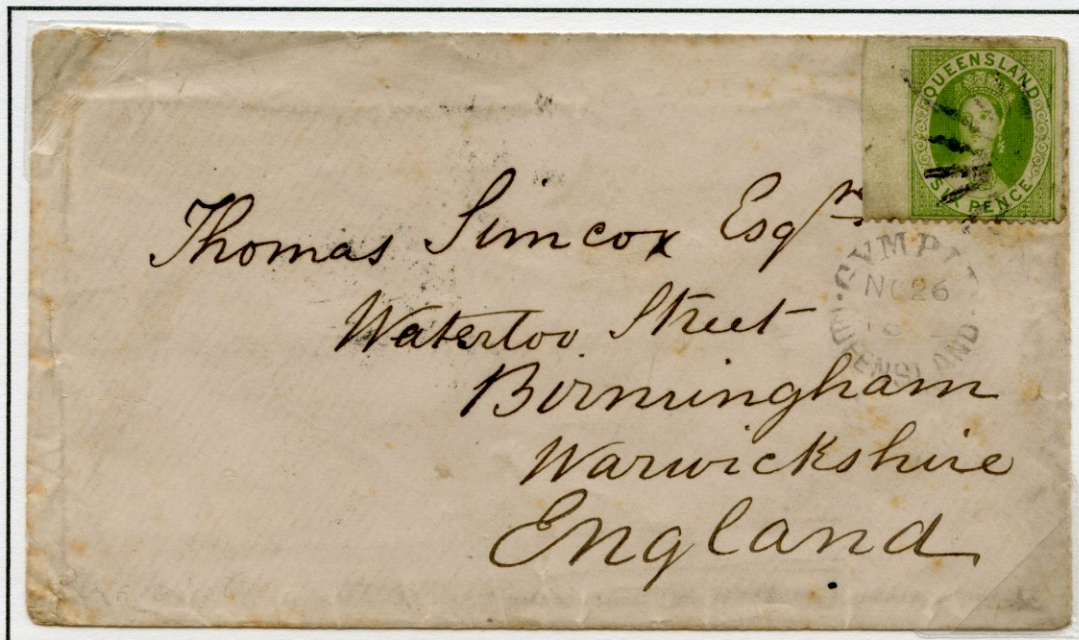 QUEENSLAND
SIX PENCE
Thomas Simcox Esqre
GYMPIE
NO 26
QUEENSLAND
Waterloo Street
Birmingham
Warwickshire
England